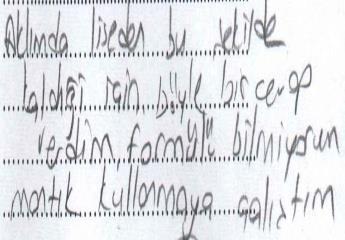 Aklımda liseden bu şekilde
kaldığı için böyle bir cevap
verdim, formülü bilmiyorum
mantık kullanmaya çalıştım